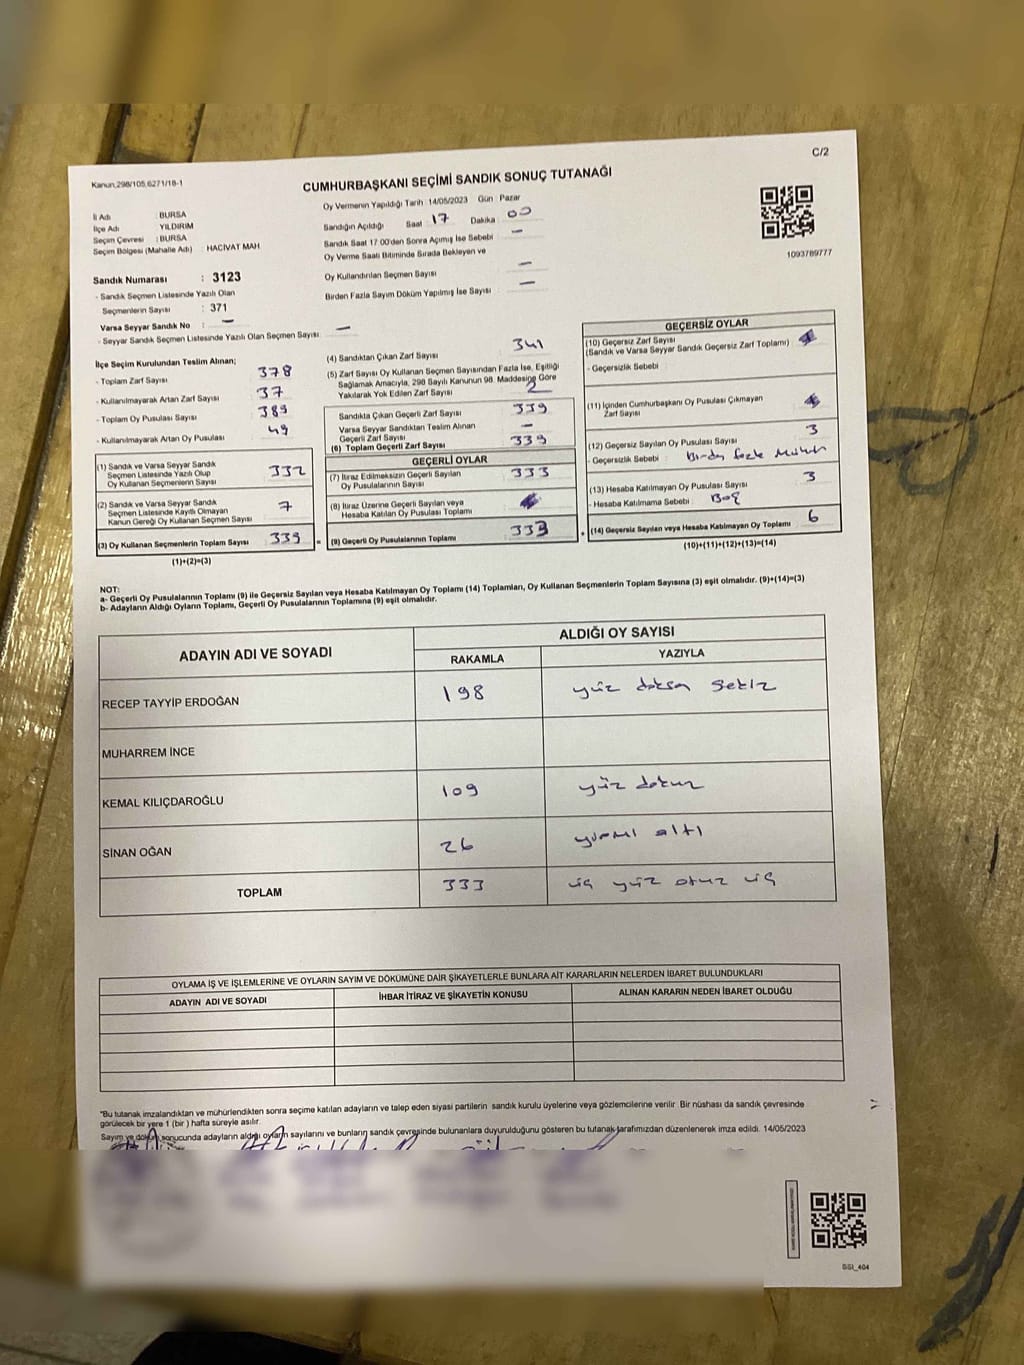 C/2
Kanun,298/105,6271/18-1
CUMHURBAŞKANI SEÇİMİ SANDIK SONUÇ TUTANAĞI
İl Adı : BURSA
İlçe Adı : YILDIRIM
Seçim Çevresi : BURSA
Seçim Bölgesi (Mahalle Adı) : HACİVAT MAH.
Sandık Numarası : 3123
- Sandık Seçmen Listesinde Yazılı Olan
Seçmenlerin Sayısı : 371
Varsa Seyyar Sandık No : —
- Seyyar Sandık Seçmen Listesinde Yazılı Olan Seçmen Sayısı : —
Oy Vermenin Yapıldığı Tarih :14/05/2023 Gün Pazar
Sandığın Açıldığı Saat 17 Dakika 00
Sandık Saat 17:00'den Sonra Açımış İse Sebebi —
Oy Verme Saati Bitiminde Sırada Bekleyen ve
Oy Kullandırılan Seçmen Sayısı —
Birden Fazla Sayım Döküm Yapılmış İse Sayısı —
1093789777
İlçe Seçim Kurulundan Teslim Alınan;
- Toplam Zarf Sayısı 378
- Kullanılmayarak Artan Zarf Sayısı 37
- Toplam Oy Pusulası Sayısı 389
- Kullanılmayarak Artan Oy Pusulası 49
(1) Sandık ve Varsa Seyyar Sandık
Seçmen Listesinde Yazılı Olup
Oy Kullanan Seçmenlerin Sayısı 332
(2) Sandık ve Varsa Seyyar Sandık
Seçmen Listesinde Kayıtlı Olmayan
Kanun Gereği Oy Kullanan Seçmen Sayısı 7
(3) Oy Kullanan Seçmenlerin Toplam Sayısı 339
(1)+(2)=(3)
(4) Sandıktan Çıkan Zarf Sayısı 341
(5) Zarf Sayısı Oy Kullanan Seçmen Sayısından Fazla İse, Eşitliği
Sağlamak Amacıyla, 298 Sayılı Kanunun 98. Maddesine Göre
Yakılarak Yok Edilen Zarf Sayısı 2
Sandıkta Çıkan Geçerli Zarf Sayısı 339
Varsa Seyyar Sandıktan Teslim Alınan
Geçerli Zarf Sayısı —
(6) Toplam Geçerli Zarf Sayısı 339
GEÇERLİ OYLAR
(7) İtiraz Edilmeksizin Geçerli Sayılan
Oy Pusulalarının Sayısı 333
(8) İtiraz Üzerine Geçerli Sayılan veya
Hesaba Katılan Oy Pusulası Toplamı
(9) Geçerli Oy Pusulalarının Toplamı 333
GEÇERSİZ OYLAR
(10) Geçersiz Zarf Sayısı
(Sandık ve Varsa Seyyar Sandık Geçersiz Zarf Toplamı)
- Geçersizlik Sebebi :
(11) İçinden Cumhurbaşkanı Oy Pusulası Çıkmayan
Zarf Sayısı
(12) Geçersiz Sayılan Oy Pusulası Sayısı 3
- Geçersizlik Sebebi : Birden fazla Mühür
(13) Hesaba Katılmayan Oy Pusulası Sayısı 3
- Hesaba Katılmama Sebebi : Boş
(14) Geçersiz Sayılan veya Hesaba Katılmayan Oy Toplamı 6
(10)+(11)+(12)+(13)=(14)
NOT:
a- Geçerli Oy Pusulalarının Toplamı (9) ile Geçersiz Sayılan veya Hesaba Katılmayan Oy Toplamı (14) Toplamları, Oy Kullanan Seçmenlerin Toplam Sayısına (3) eşit olmalıdır. (9)+(14)=(3)
b- Adayların Aldığı Oyların Toplamı, Geçerli Oy Pusulalarının Toplamına (9) eşit olmalıdır.
ADAYIN ADI VE SOYADI
ALDIĞI OY SAYISI
RAKAMLA YAZIYLA
RECEP TAYYİP ERDOĞAN 198 yüz doksan sekiz
MUHARREM İNCE
KEMAL KILIÇDAROĞLU 109 yüz dokuz
SİNAN OĞAN 26 yirmi altı
TOPLAM 333 üç yüz otuz üç
OYLAMA İŞ VE İŞLEMLERİNE VE OYLARIN SAYIM VE DÖKÜMÜNE DAİR ŞİKAYETLERLE BUNLARA AİT KARARLARIN NELERDEN İBARET BULUNDUKLARI
ADAYIN ADI VE SOYADI İHBAR İTİRAZ VE ŞİKAYETİN KONUSU ALINAN KARARIN NEDEN İBARET OLDUĞU
*Bu tutanak imzalandıktan ve mühürlendikten sonra seçime katılan adayların ve talep eden siyasi partilerin sandık kurulu üyelerine veya gözlemcilerine verilir. Bir nüshası da sandık çevresinde
görülecek bir yere 1 (bir ) hafta süreyle asılır.
Sayım ve döküm sonucunda adayların aldığı oyların sayılarını ve bunların sandık çevresinde bulunanlara duyurulduğunu gösteren bu tutanak tarafımızdan düzenlenerek imza edildi. 14/05/2023
SSI_404